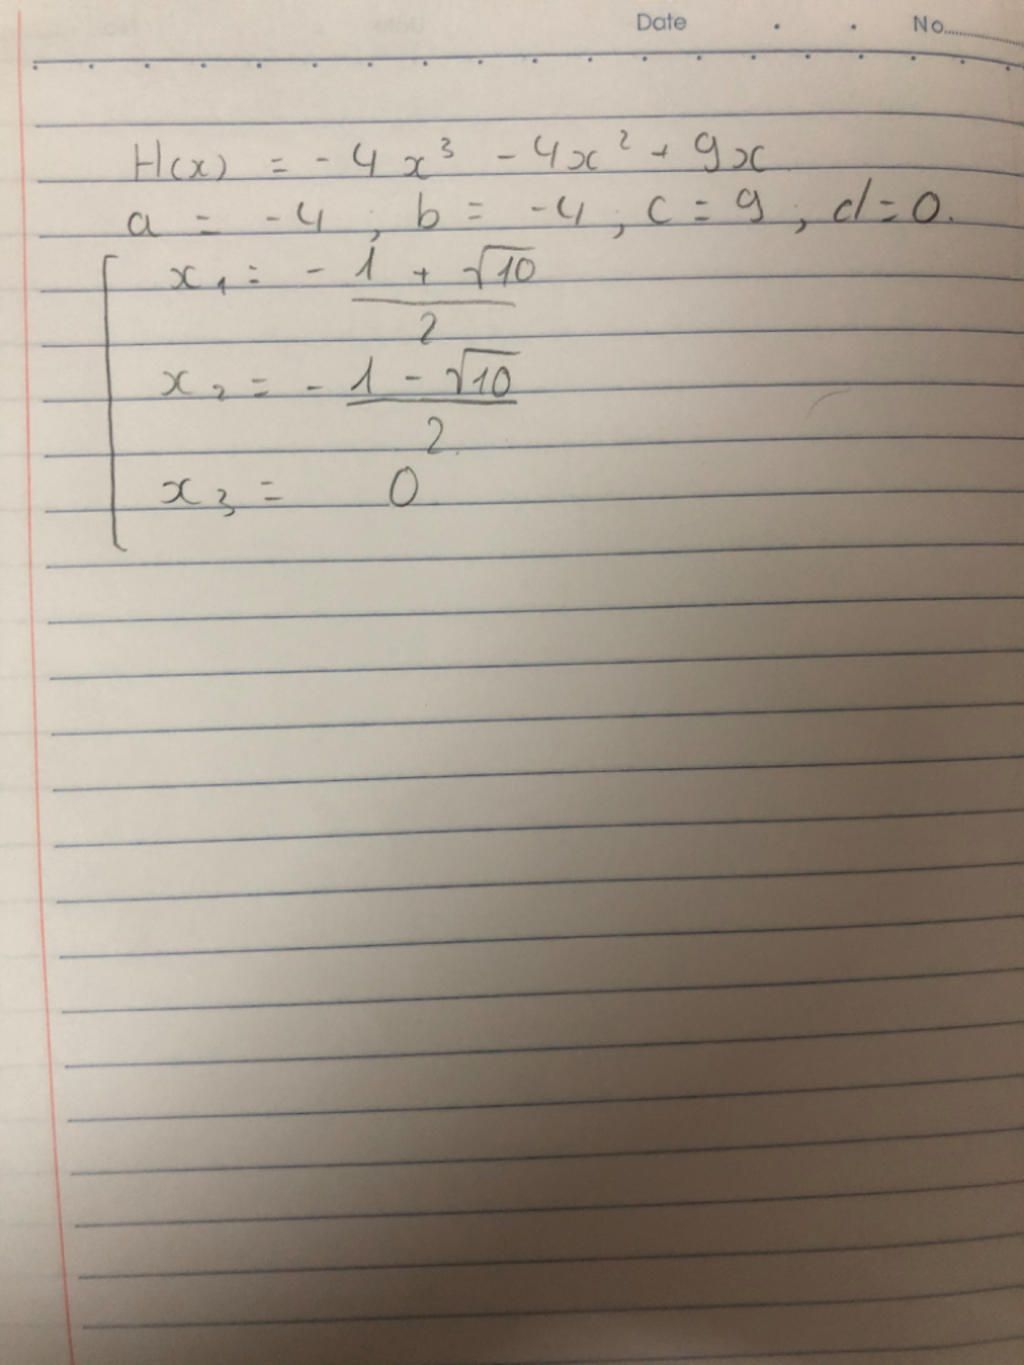 Date . . No.........
H(x) = - 4x³ - 4x² + 9x
a = -4 ; b = -4 ; c = 9 ; d = 0.
x₁ = - 1 + √10
2
x₂ = - 1 - √10
2
x₃ = 0